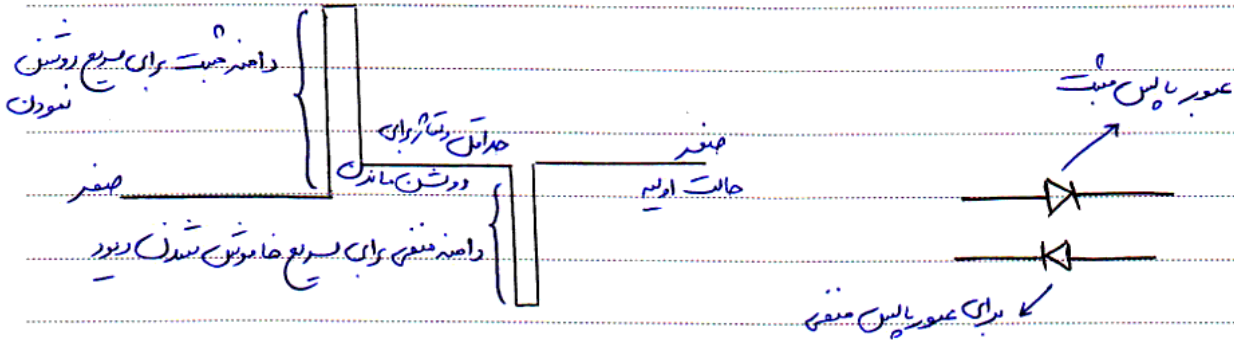 دامنه مثبت برای سریع روشن
نمودن
صفر
حداقل ولتاژ برای
روشن ماندن
صفر
حالت اولیه
دامنه منفی برای سریع خاموش شدن دیود
عبور پالس مثبت
برای عبور پالس منفی